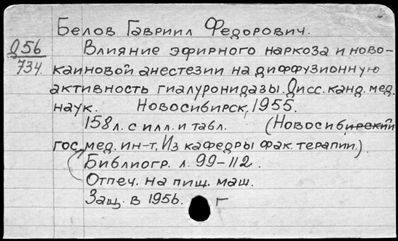 Белов Гавриил Федорович.
Д56
734
Влияние эфирного наркоза и ново-
каиновой анестезии на диффузионную
активность гиалуронидазы. Дисс. канд. мед.
наук. Новосибирск, 1955.
158 л. с илл. и табл. (Новосибирский
гос. мед. ин-т, Из кафедры фак. терапии).
Библиогр. л. 99-112.
Отпеч. на пиш. маш.
Защ. в 1956. г